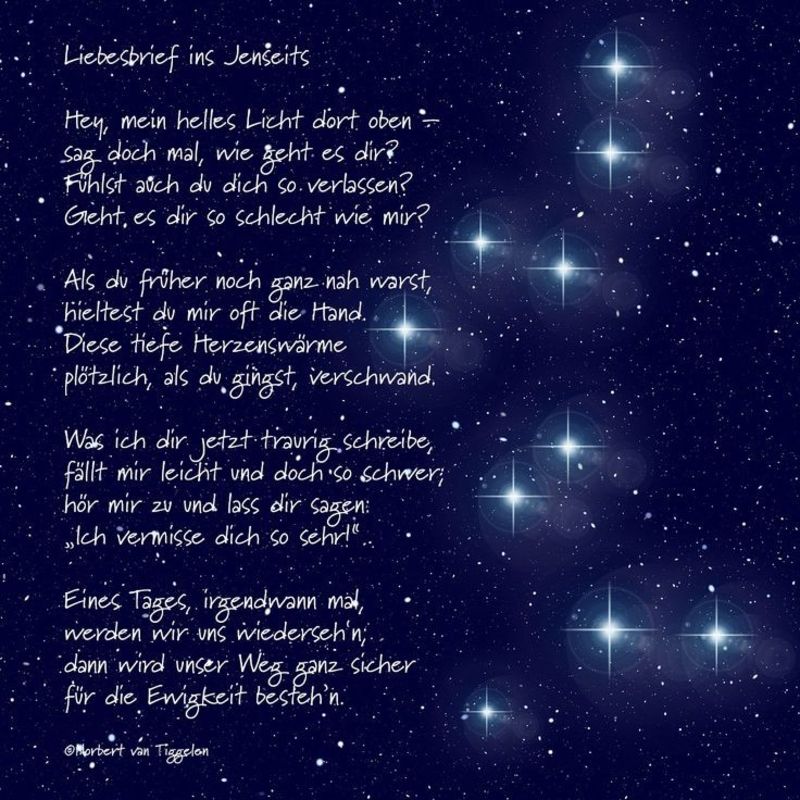 Liebesbrief ins Jenseits
Hey, mein helles Licht dort oben –
sag doch mal, wie geht es dir?
Fühlst auch du dich so verlassen?
Geht es dir so schlecht wie mir?
Als du früher noch ganz nah warst,
hieltest du mir oft die Hand.
Diese tiefe Herzenswärme
plötzlich, als du gingst, verschwand.
Was ich dir jetzt traurig schreibe,
fällt mir leicht und doch so schwer;
hör mir zu und lass dir sagen:
„Ich vermisse dich so sehr!“
Eines Tages, irgendwann mal,
werden wir uns wiederseh'n;
dann wird unser Weg ganz sicher
für die Ewigkeit besteh'n.
©Norbert van Tiggelen